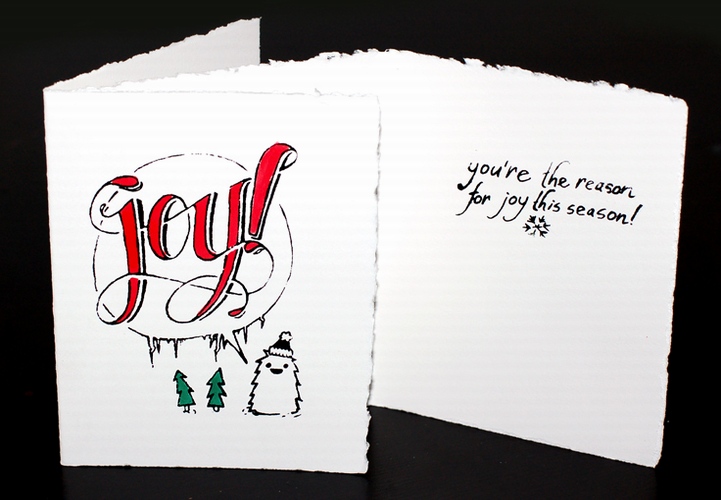 joy!
you're the reason
for joy this season!